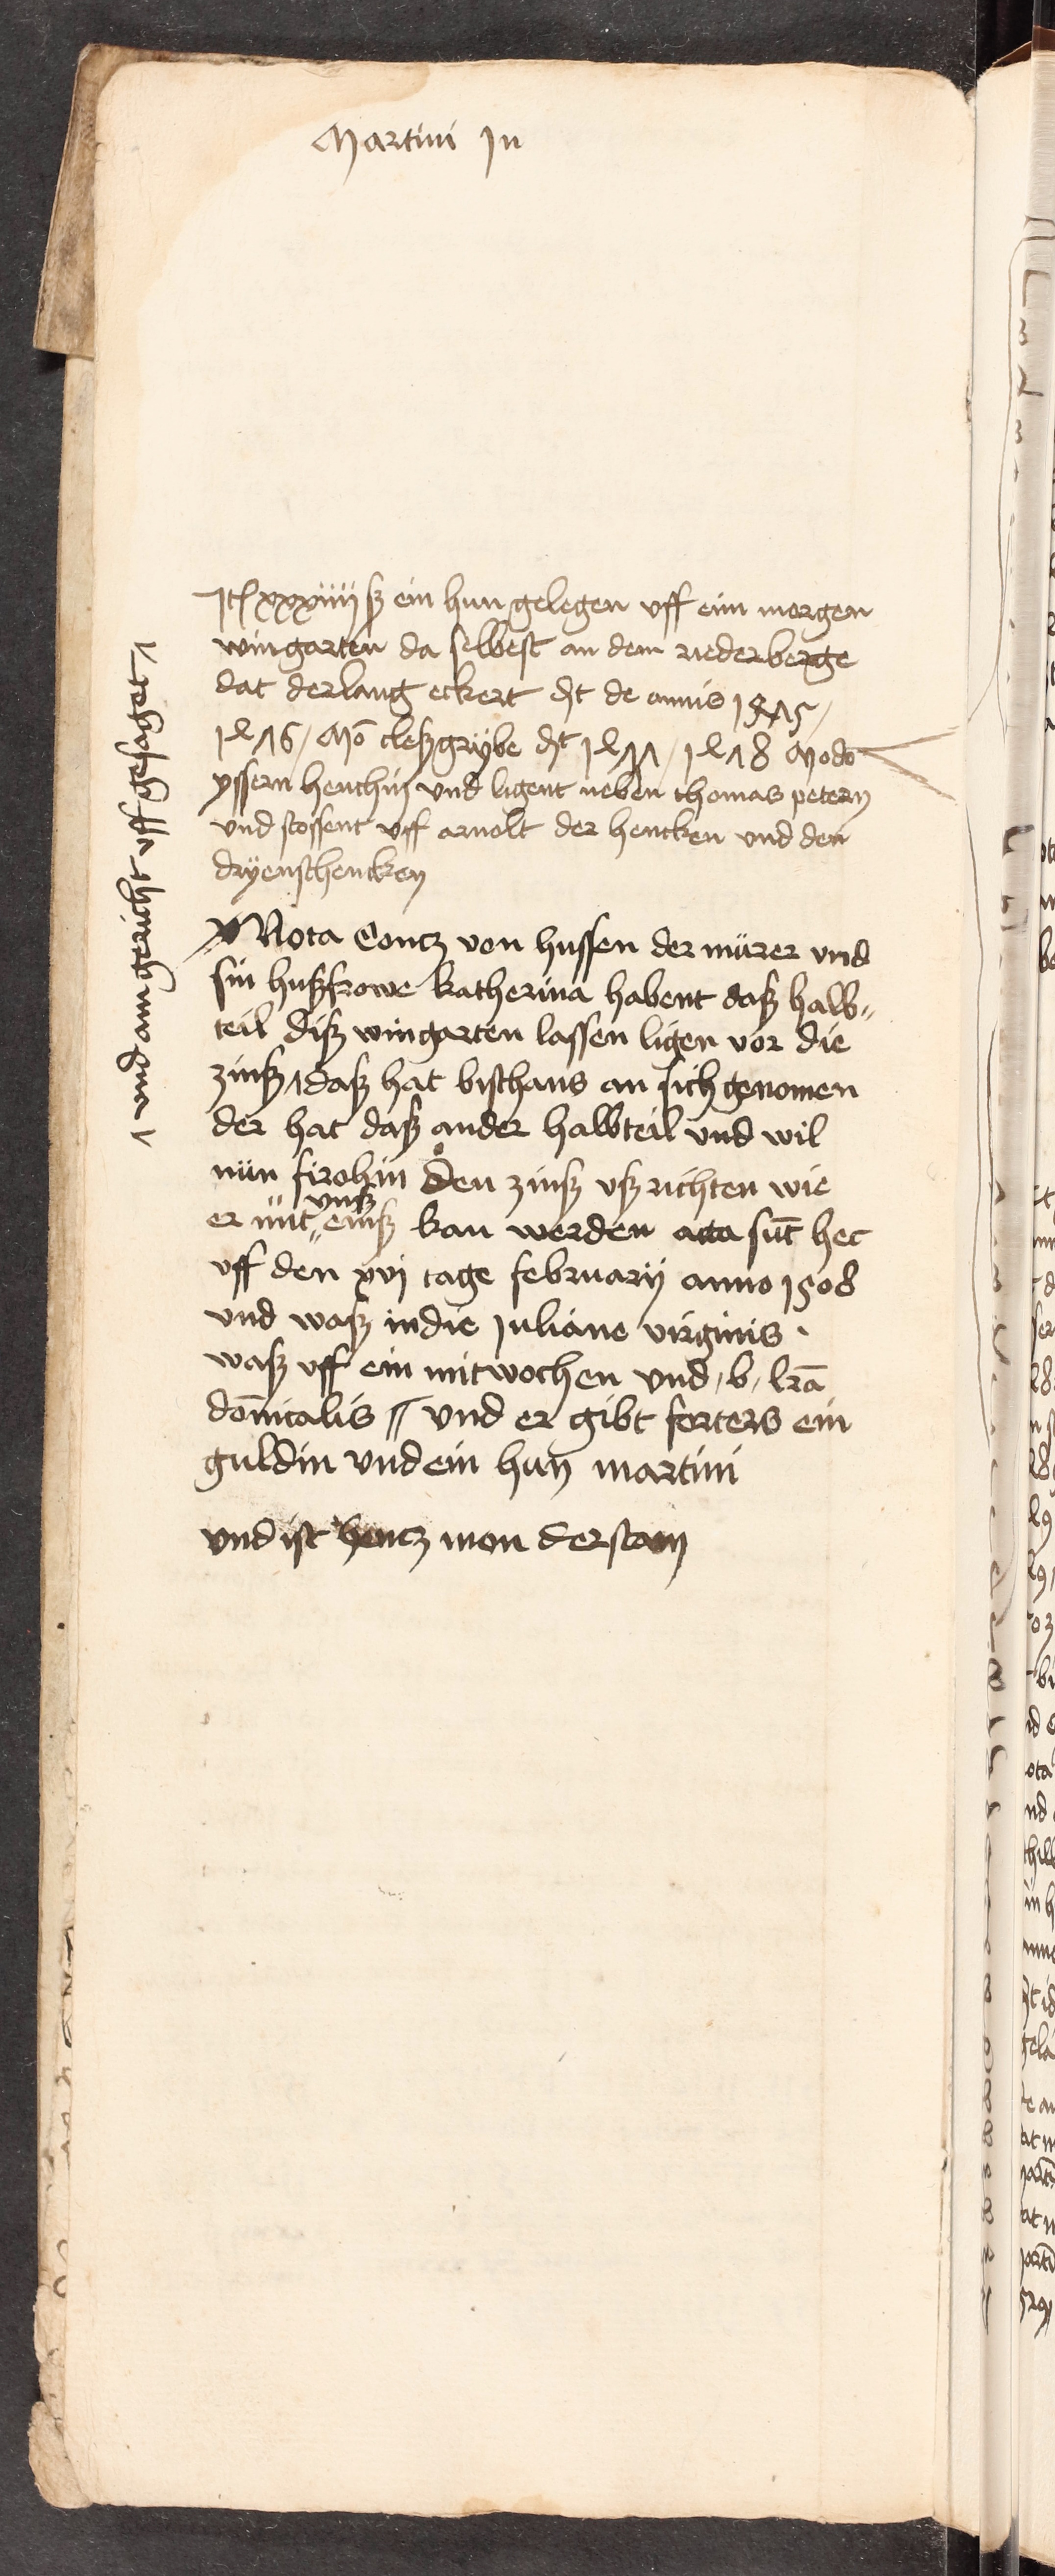 Martini Jn
Jt xxxiiij ß ein hun gelegen vff eim morgen
wingarten da selbest an dem riederberge
dat der lang eckert dt de annis 1475 /
1476 / Mō cleßgrybe dt 1477 / 1478 Modo
yssern henchin vnd ligent neben thomas petern
vnd stossent vff arnolt der hencken vnd den
dryenschencken
Nota Contz von hussen der mürer vnd
sin hußfrowe katherina habent daß halb„
teil diß wingarten lassen ligen vor die
zinß / daß hat bischans an sich genomen
der hat daß ander halbteil vnd wil
nün firohin den zinß vßrichten wie
vnß
er mit „ einß kan werden acta sūt hec
vff den xvj tage februarij anno 1508
vnd waß indie Juliane virginis ·
waß vff ein mitwochen vnd / b / lr̄a
dōnicalis // vnd er gibt forters ein
guldin vnd ein hun martini
vnd ist hentz mon der stam
/ vnd am gericht vff gesaget /